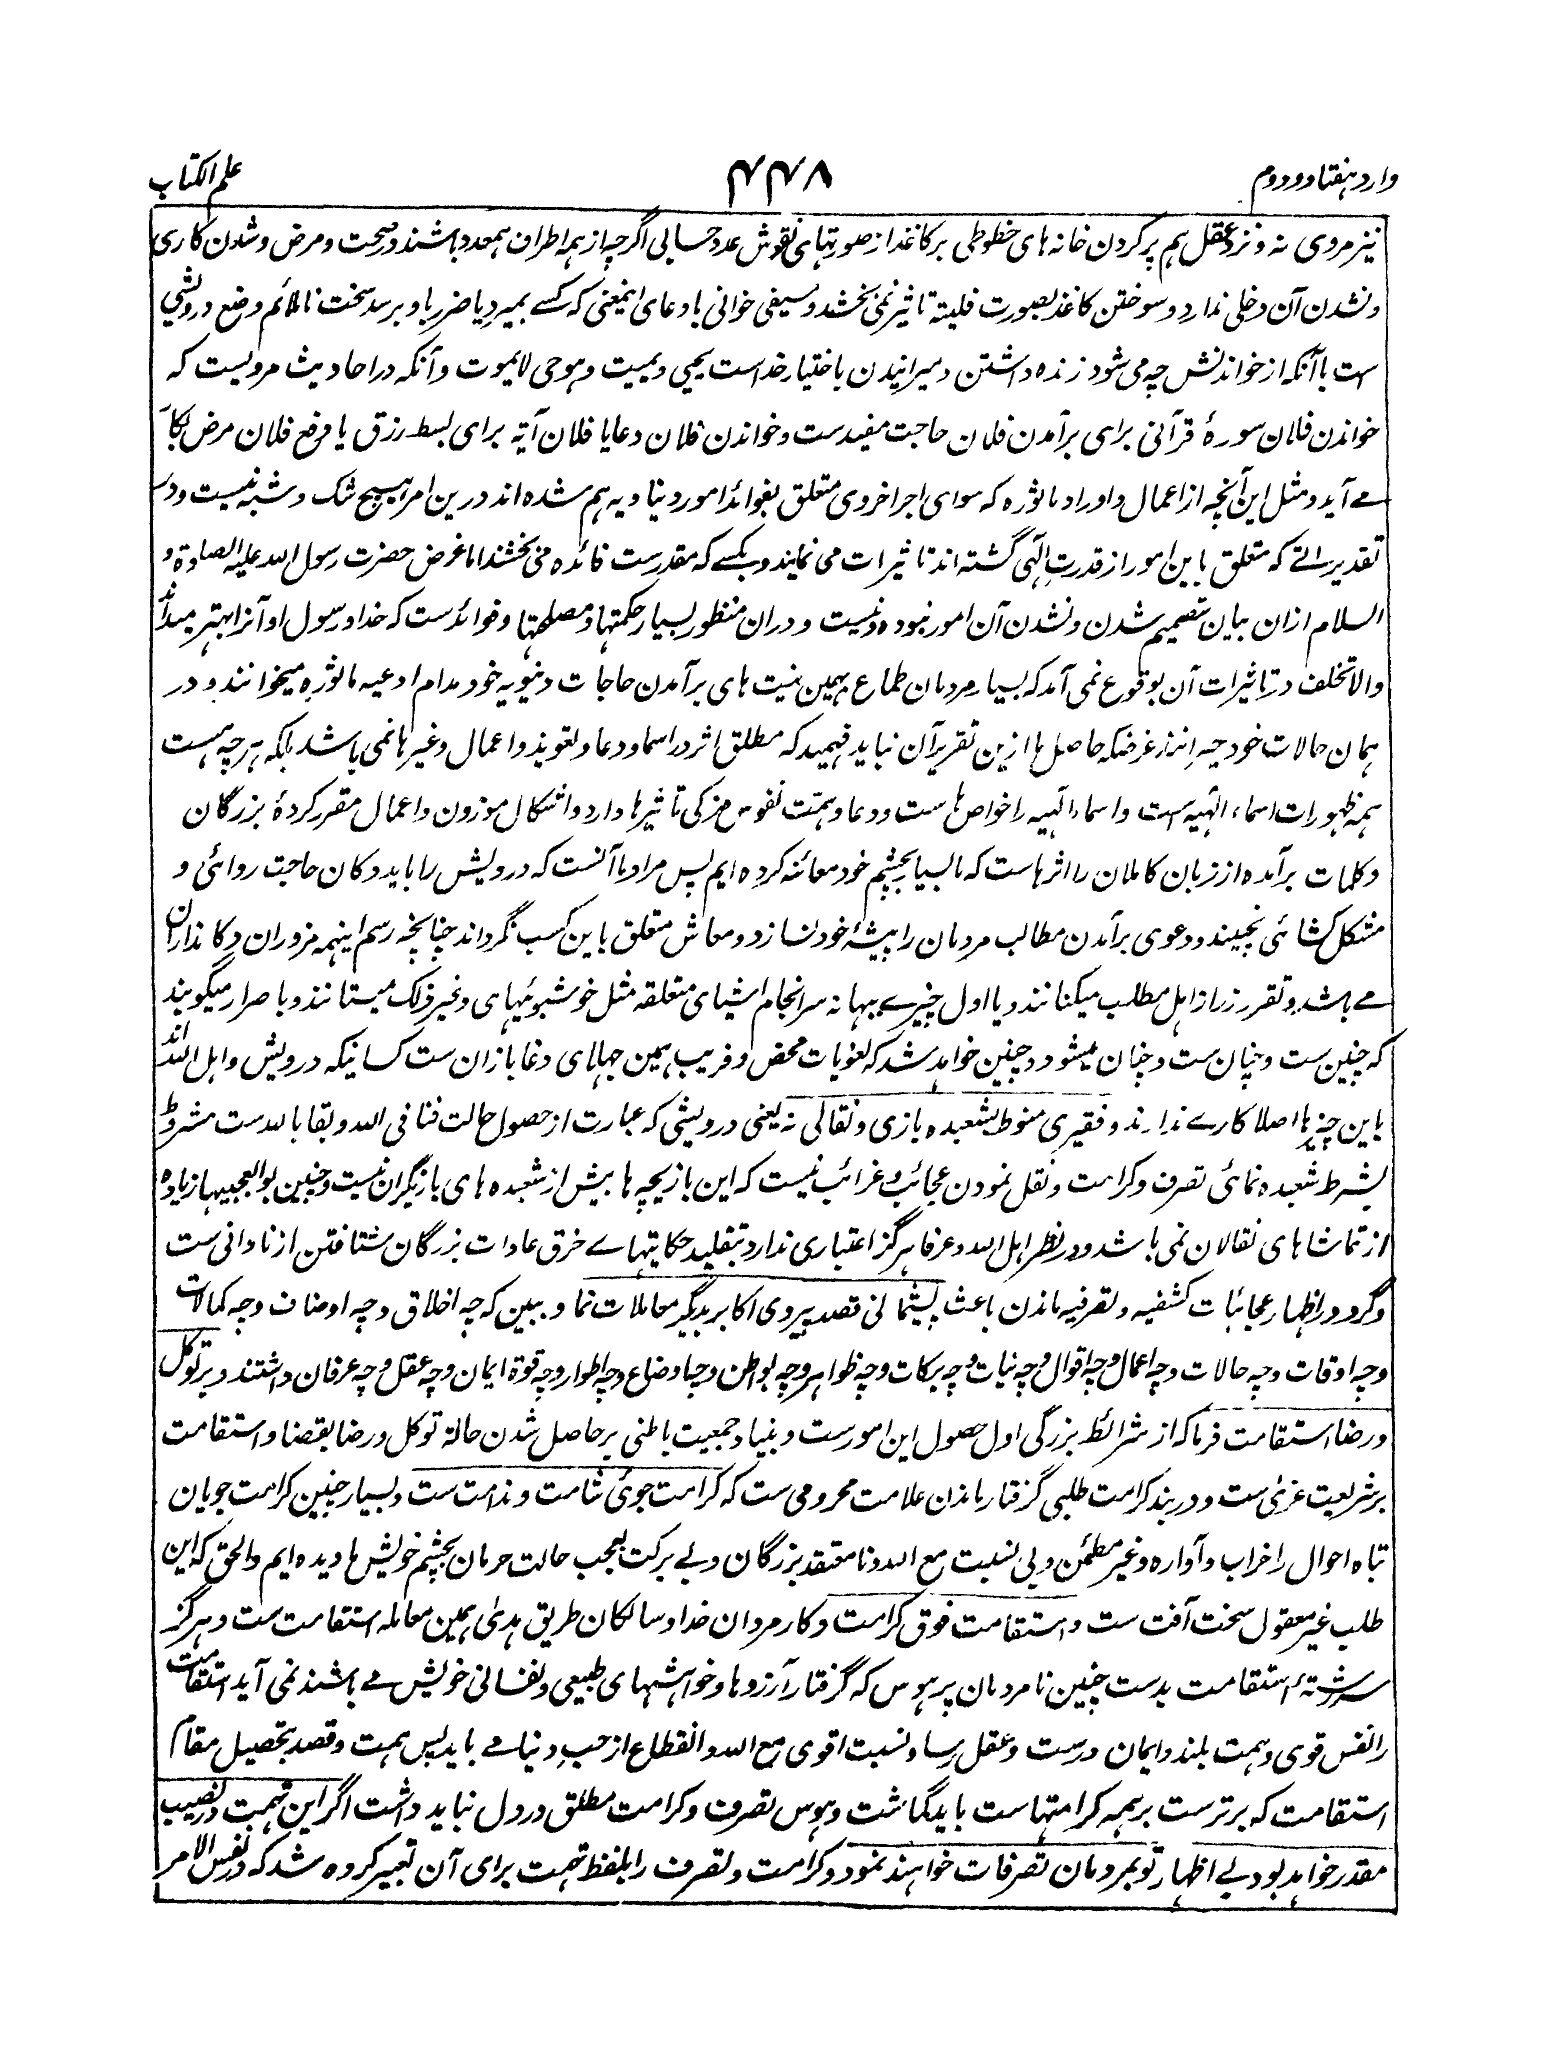 وارد هفتاد و دوم
۴۴۸
علم الکتاب
نیز مروی نه و نزد عقل هم پر کردن خانه های خطوطی بر کاغذ از صورتهای نقوش عدد حسابی اگرچه از همه اطراف همعدد باشند در صحت و مرض و شدن کاری
و نشدن آن دخلی ندارد و سوختن کاغذ بصورت فلیته تاثیر نمی بخشد و سیفی خوانی با دعای اینمعنی که کسے بمیرد یا ضرر باو برسد سخت نا ملائم وضع درویشی
ست با آنکه از خواندنش چه می شود زنده داشتن و میرانیدن باختیار خداست یحیی و یمیت و هو حی لایموت و آنکه در احادیث مرویست که
خواندن فلان سورهٔ قرآنی برای برآمدن فلان حاجت مفیدست و خواندن فلان دعا یا فلان آیه برای بسط رزق یا رفع فلان مرض بکار
مے آید و مثل این آنچه از اعمال و اوراد ماثوره که سوای اجر اخروی متعلق بفوائد امور دنیاویه هم شده اند درین امر هیچ شک و شبه نیست و در
تقدیراتے که متعلق باین امور از قدرت الٰهی گشته اند تاثیرات می نمایند و بکسے که مقدرست فائده می بخشند اما غرض حضرت رسول الله علیه الصلوة و
السلام ازان بیان تصمیم شدن و نشدن آن امور نبوده و نیست و دران منظور بسیار حکمتها و مصلحتها و فوائدست که خدا و رسول او آنرا بهتر میدانند
والا تخلف در تاثیرات آن بوقوع نمی آمد که بسیار مردمان طماع بهمین نیت های برآمدن حاجات دنیویه خود مدام ادعیه ماثوره میخوانند و در
همان حالات خود حیرانند غرضکه حاصل ما ازین تقریر آن نباید فهمید که مطلق اثر در اسما و دعا و تعویذ و اعمال و غیرها نمی باشد بلکه هرچه هست
همه ظهورات اسماء الٰهیه ست و اسماء الٰهیه را خواص هاست و دعا و همت نفوس مزکی تاثیرها دارد و اشکال موزون و اعمال مقرر کردهٔ بزرگان
و کلمات برآمده از زبان کاملان را اثرهاست که ما بسیار بچشم خود معائنه کرده ایم پس مراد ما آنست که درویش را باید دکان حاجت روائی و
مشکل کشائی نچیند و دعوی برآمدن مطالب مردمان را پیشهٔ خود نسازد و معاش متعلق باین کسب نگرداند چنانچه رسم اینهمه مزوران دکانداران
مے باشد و تقرر زر از اهل مطلب میکنانند و یا اول چیزے ببهانه سرانجام اشیای متعلقه مثل خوشبوئیهای و غیر ذلک میستانند و باصرار میگویند
که چنین ست و چنان ست و چنان میشود و چنین خواهد شد که لغویات محض و فریب همین جهلای دغابازان ست کسانیکه درویش و اهل الله اند
باین چیزها اصلا کارے ندارند و فقیری منوط بشعبده بازی و نقالی نه یعنی درویشی که عبارت از حصول حالت فنا فی الله و بقا بالله ست مشروط
بشرط شعبده نمائی تصرف و کرامت و نقل نمودن عجائب و غرائب نیست که این بازیچه ها بیش از شعبده های بازیگران نیست و چنین بوالعجبیها زیاده
از تماشاهای نقالان نمی باشد و در نظر اهل الله و عرفا هرگز اعتباری ندارد بتقلید حکایتهاے خرق عادات بزرگان شتافتن از نادانی ست
و گرد اظهار عجائبات کشفیه و تصرفیه ماندن باعث پشیمانی قصد پیروی اکابر بدیگر معاملات نما و ببین که چه اخلاق و چه اوصاف و چه کمالات
و چه اوقات و چه حالات و چه اعمال و چه اقوال و چه نیات و چه برکات و چه ظواهر و چه بواطن و چه اوضاع و چه اطوار و چه قوة ایمان و چه عقل و چه عرفان داشتند و بر توکل
و رضا استقامت فرما که از شرائط بزرگی اول حصول این امورست و بنیاد جمعیت باطنی بر حاصل شدن حالة توکل و رضا بقضا و استقامت
بر شریعت غرّی ست و در بند کرامت طلبی گرفتار ماندن علامت محرومی ست که کرامت جوئی شامت و ندامت ست و بسیار چنین کرامت جویان
تباه احوال را خراب و آواره و غیر مطمئن و بی نسبت مع الله و نا معتقد بزرگان و بے برکت بعجب حالت حرمان بچشم خویش ها دیده ایم والحق که این
طلب غیر معقول سخت آفت ست و استقامت فوق کرامت و کار مردان خدا و سالکان طریق هدیٰ همین معامله استقامت ست و هرگز
سررشتهٔ استقامت بدست چنین نامردمان پر هوس که گرفتار آرزوها و خواهشهای طبیعی و نفسانی خویش مے باشند نمی آید استقامت
را نفس قوی و همت بلند و ایمان درست و عقل رسا و نسبت اقوی مع الله و انقطاع از حب دنیا مے باید پس همت و قصد بتحصیل مقام
استقامت که برترست بر همه کرامتهاست باید گماشت و هوس تصرف و کرامت مطلق در دل نباید داشت اگر این تهمت در نصیب
مقدر خواهد بود بے اظهار تو بمردمان تصرفات خواهند نمود و کرامت و تصرف را بلفظ تهمت برای آن تعبیر کرده شد که در نفس الامر